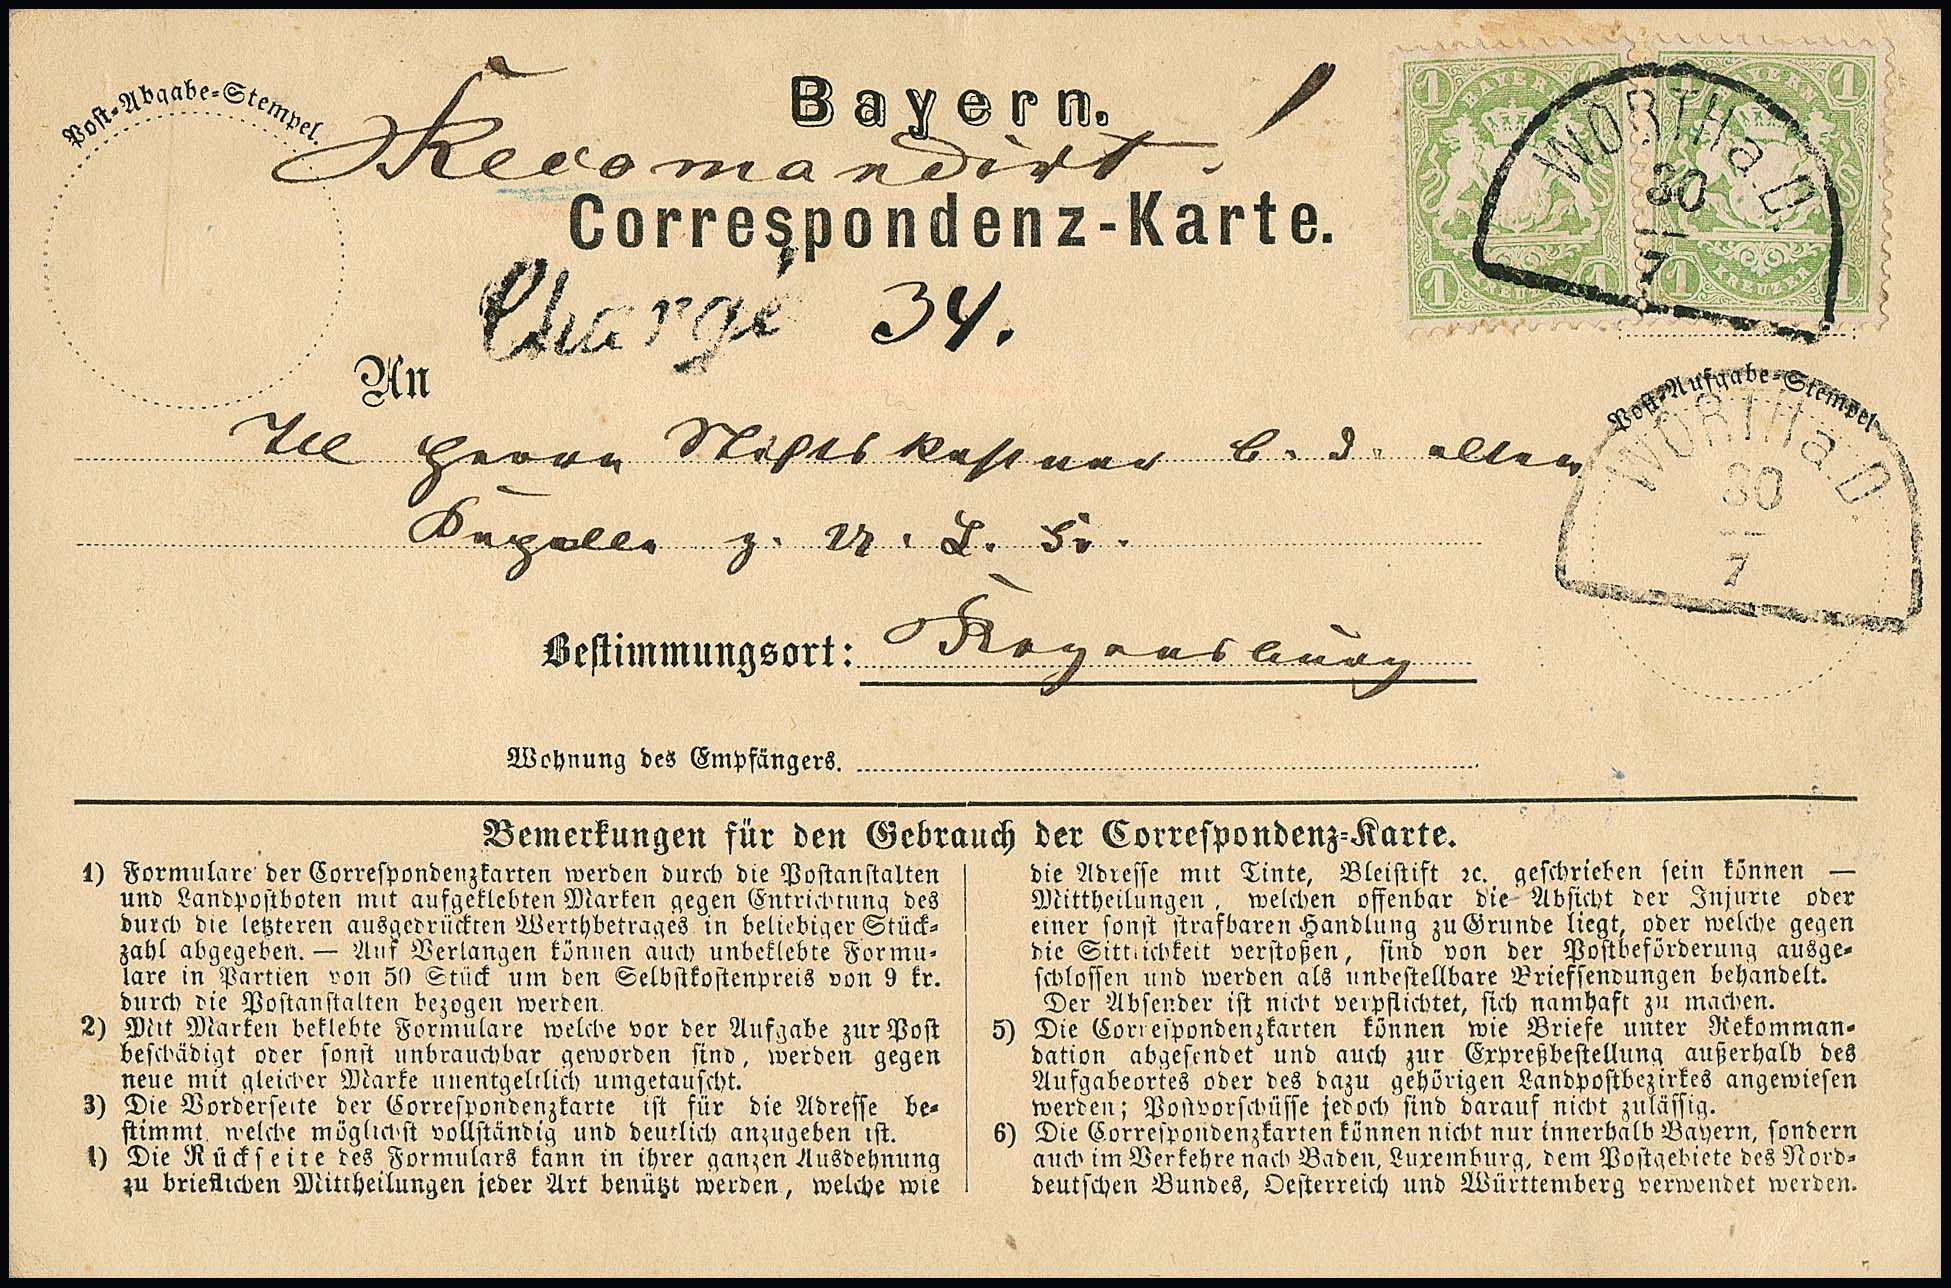 Post-Abgabe-Stempel.
Bayern.
Recomandirt!
Correspondenz-Karte.
Chargé 34.
1 BAYERN 1
1 KREUZER 1
1 BAYERN 1
1 KREUZER 1
WÖRTH a.D.
30
7
An
Herrn Stiftskastner b. d. alten
Kapelle z. U. L. Fr.
Post-Aufgabe-Stempel
WÖRTH a.D.
30
7
Bestimmungsort: Regensburg
Wohnung des Empfängers.
Bemerkungen für den Gebrauch der Correspondenz-Karte.
1) Formulare der Correspondenzkarten werden durch die Postanstalten
und Landpostboten mit aufgeklebten Marken gegen Entrichtung des
durch die letzteren ausgedrückten Werthbetrages in beliebiger Stück-
zahl abgegeben. — Auf Verlangen können auch unbeklebte Formu-
lare in Partien von 50 Stück um den Selbstkostenpreis von 9 kr.
durch die Postanstalten bezogen werden.
2) Mit Marken beklebte Formulare welche vor der Aufgabe zur Post
beschädigt oder sonst unbrauchbar geworden sind, werden gegen
neue mit gleicher Marke unentgeltlich umgetauscht.
3) Die Vorderseite der Correspondenzkarte ist für die Adresse be-
stimmt, welche möglichst vollständig und deutlich anzugeben ist.
4) Die Rückseite des Formulars kann in ihrer ganzen Ausdehnung
zu brieflichen Mittheilungen jeder Art benützt werden, welche wie
die Adresse mit Tinte, Bleistift ꝛc. geschrieben sein können —
Mittheilungen, welchen offenbar die Absicht der Injurie oder
einer sonst strafbaren Handlung zu Grunde liegt, oder welche gegen
die Sittlichkeit verstoßen, sind von der Postbeförderung ausge-
schlossen und werden als unbestellbare Briefsendungen behandelt.
Der Absender ist nicht verpflichtet, sich namhaft zu machen.
5) Die Correspondenzkarten können wie Briefe unter Rekomman-
dation abgesendet und auch zur Expreßbestellung außerhalb des
Aufgabeortes oder des dazu gehörigen Landpostbezirkes angewiesen
werden; Postvorschüsse jedoch sind darauf nicht zulässig.
6) Die Correspondenzkarten können nicht nur innerhalb Bayern, sondern
auch im Verkehre nach Baden, Luxemburg, dem Postgebiete des Nord-
deutschen Bundes, Oesterreich und Württemberg verwendet werden.